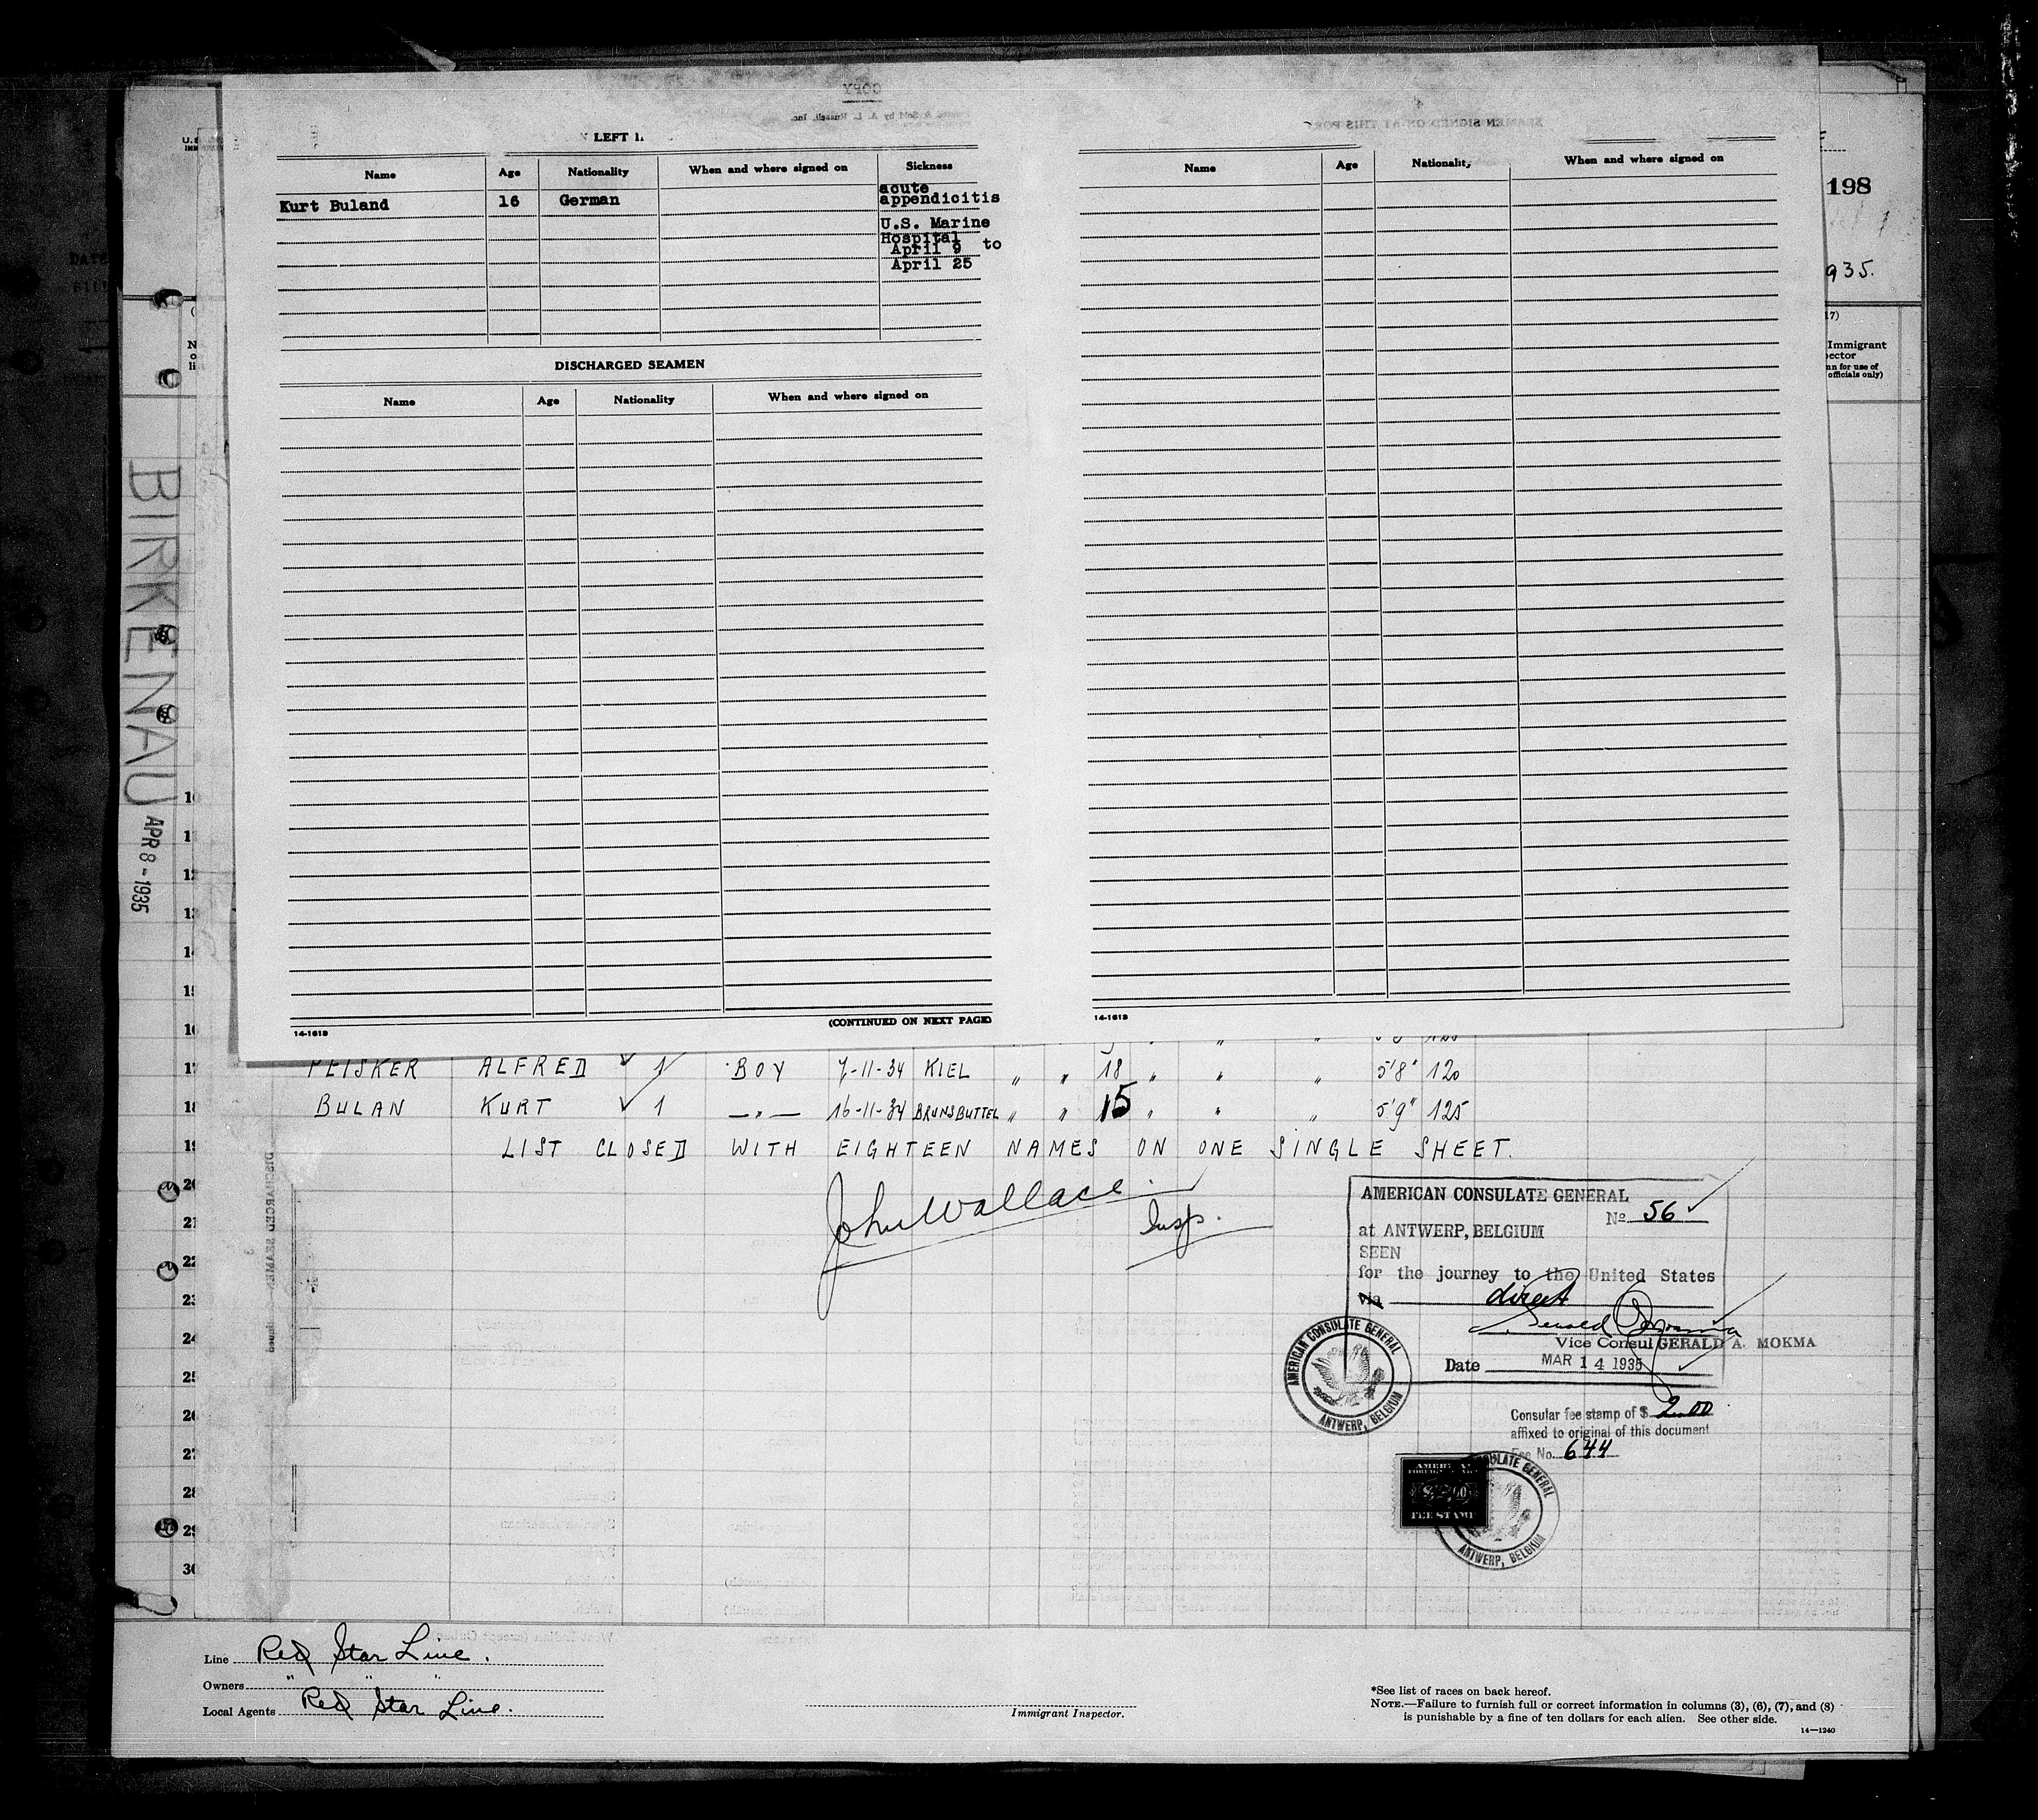 COPY
LEFT
Name Age Nationality When and where signed on Sickness
Kurt Buland 16 German acute
appendicitis
U.S. Marine
Hospital
April 9 to
April 25
DISCHARGED SEAMEN
Name Age Nationality When and where signed on
(CONTINUED ON NEXT PAGE)
14-1613
SEAMEN SIGNED ON AT THIS PORT
Name Age Nationality When and where signed on
14-1613
198
935.
Immigrant
n for use of
officials only)
BIRKENAU APR 8 - 1935
17 ALFRED ✓ 1 BOY 7-11-34 KIEL " " 18 " " " 5'8" 120
18 BULAN KURT ✓ 1 —"— 16-11-34 BRUNSBUTTEL " " 15 " " " 5'9" 125
19 LIST CLOSED WITH EIGHTEEN NAMES ON ONE SINGLE SHEET.
20
21
22
23
24
25
26
27
28
29
30
John Wallace.
Insp.
AMERICAN CONSULATE GENERAL
No 56
at ANTWERP, BELGIUM
SEEN
for the journey to the United States
Via direct
Vice Consul GERALD A. MOKMA
Date MAR 14 1935
AMERICAN CONSULATE GENERAL
ANTWERP, BELGIUM
Consular fee stamp of $ 2.00
affixed to original of this document
Fee No. 644
FEE STAMP
CONSULATE GENERAL
ANTWERP, BELGIUM
DISCHARGED SEAMEN
Line Red Star Line.
Owners " " "
Local Agents Red Star Line.
Immigrant Inspector.
*See list of races on back hereof.
NOTE.—Failure to furnish full or correct information in columns (3), (6), (7), and (8)
is punishable by a fine of ten dollars for each alien. See other side.
14—1240